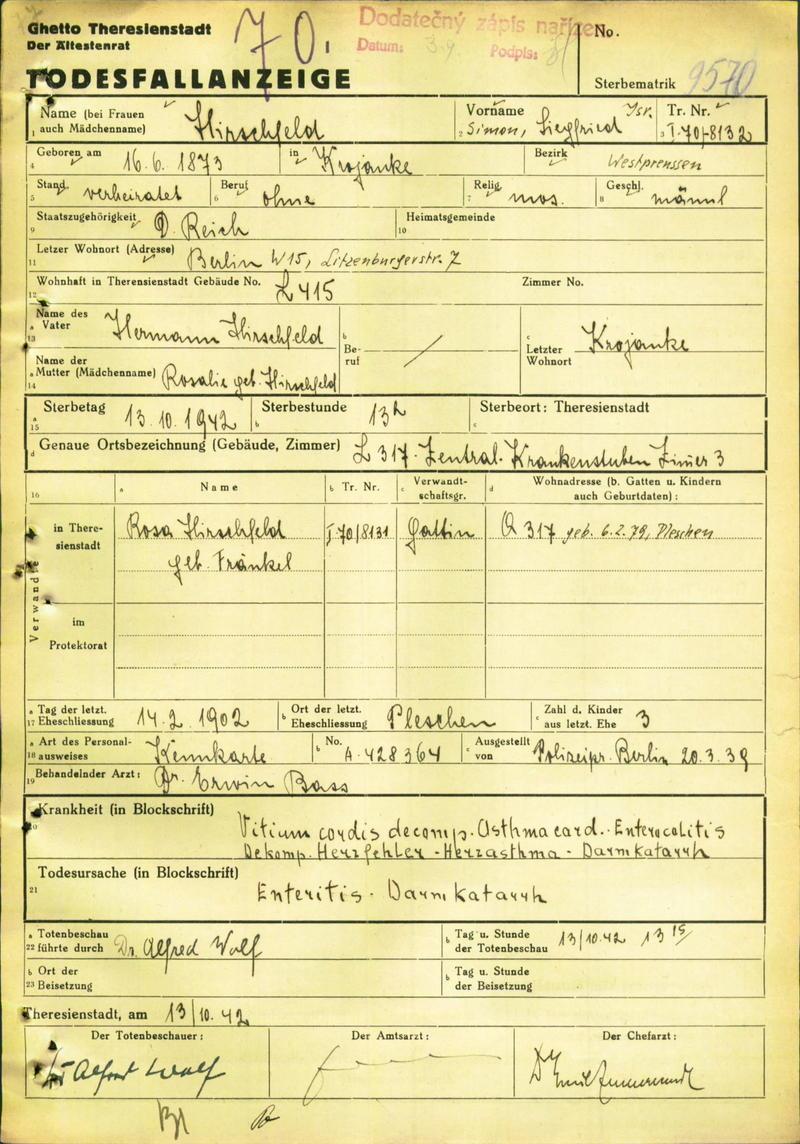 Ghetto Theresienstadt
Der Ältestenrat
70.
Dodatečný zápis nařízen
Datum: Podpis:
No.
TODESFALLANZEIGE
Sterbematrik 9570
Name (bei Frauen auch Mädchenname) Hirschfeld
Vorname Simon, Siegfried Isr.
Tr. Nr. I-70/-8132
Geboren am 16.6.1873 in Krojanke Bezirk Westpreussen
Stand verheiratet Beruf ohne Relig. mos. Geschl. männl
Staatszugehörigkeit D. Reich Heimatsgemeinde
Letzer Wohnort (Adresse) Berlin W15, Litzenburgerstr. 7
Wohnhaft in Theresienstadt Gebäude No. L 415 Zimmer No.
Name des Vater Hermann Hirschfeld
Beruf /
Letzter Wohnort Krojanke
Name der Mutter (Mädchenname) Rosalie geb. Hirschfeld
Sterbetag 13.10.1942 Sterbestunde 13h Sterbeort: Theresienstadt
Genaue Ortsbezeichnung (Gebäude, Zimmer) L 317 Zentral. Krankenstuben Zimer 3
16 Name Tr. Nr. Verwandtschaftsgr. Wohnadresse (b. Gatten u. Kindern auch Geburtdaten):
Verwandte
in Theresienstadt Rosa Hirschfeld I-70/8131 Gattin Q 317 geb. 6.2.79, Pleschen
geb. Fränkel
im Protektorat
Tag der letzt. Eheschliessung 14.2.1902 Ort der letzt. Eheschliessung Pleschen Zahl d. Kinder aus letzt. Ehe 3
Art des Personalausweises Kennkarte No. A-428364 Ausgestellt von Polizeipr. Berlin 20.3.39
Behandelnder Arzt: Dr. Erwin Bass
Krankheit (in Blockschrift) Vitium cordis decomp. Asthma card. Enterocolitis
Dekomp. Herzfehler - Herzasthma - Darmkatarrh
Todesursache (in Blockschrift)
Enteritis - Darmkatarrh
Totenbeschau führte durch Dr. Alfred Wolf Tag u. Stunde der Totenbeschau 13/10.42 13 15/
Ort der Beisetzung Tag u. Stunde der Beisetzung
Theresienstadt, am 13/10.42
Der Totenbeschauer: Der Amtsarzt: Der Chefarzt:
Dr Alfred Wolf